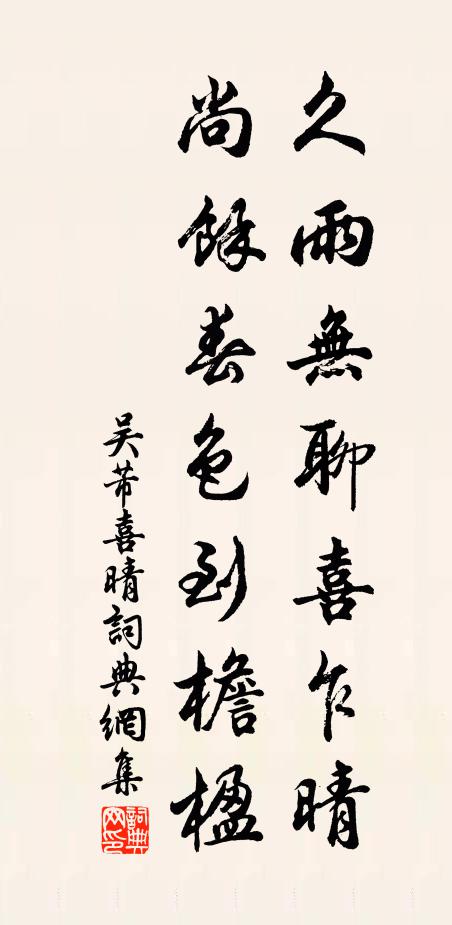 久雨無聊喜乍晴
尚餘春色到檐楹
吴芾喜晴詞典網集
詞典網印